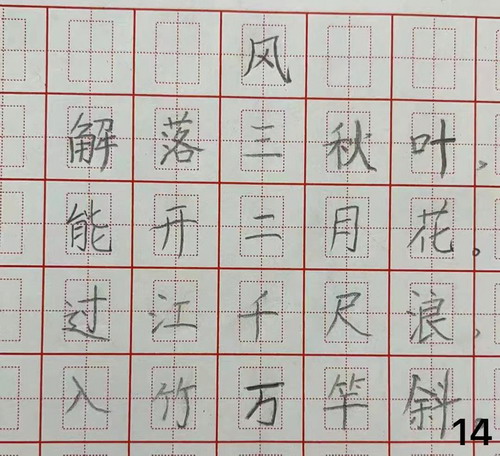 风
解落三秋叶,
能开二月花。
过江千尺浪,
入竹万竿斜
14